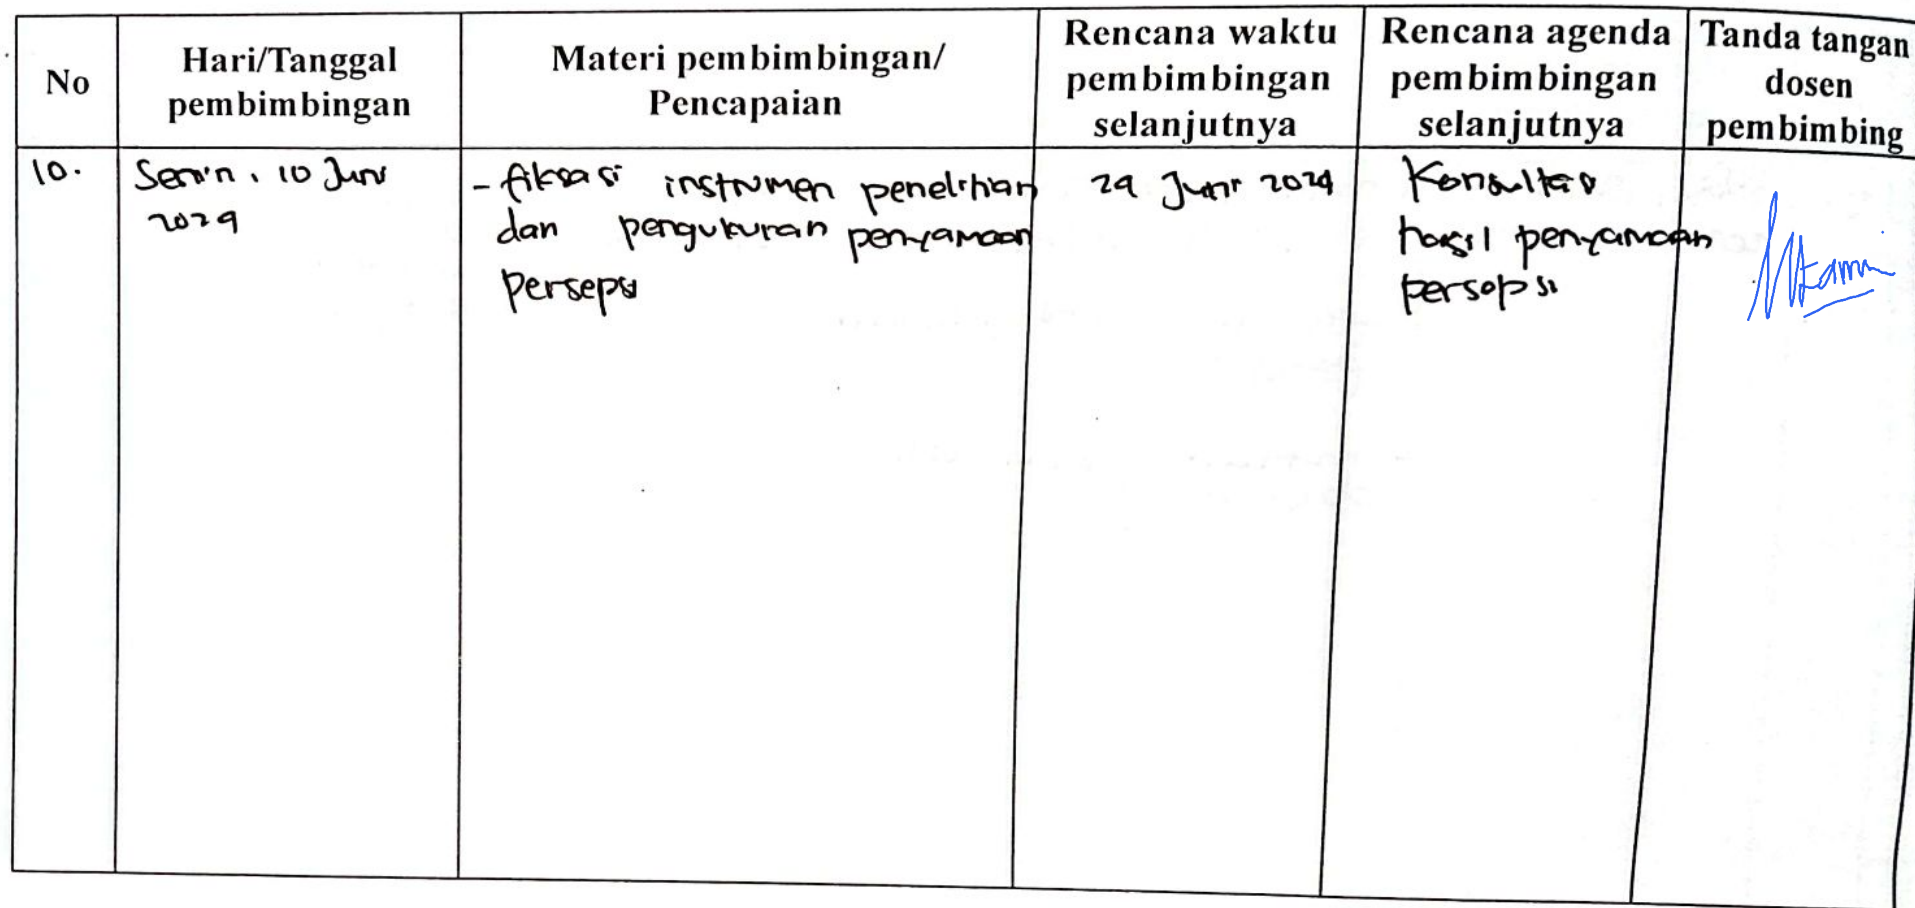 No
Hari/Tanggal
pembimbingan
Materi pembimbingan/
Pencapaian
Rencana waktu
pembimbingan
selanjutnya
Rencana agenda
pembimbingan
selanjutnya
Tanda tangan
dosen
pembimbing
10.
Senin, 10 Juni
2024
- fiksasi instrumen penelitian
dan pengukuran penyamaan
persepsi
24 Juni 2024
Konsultasi
hasil penyamaan
persepsi